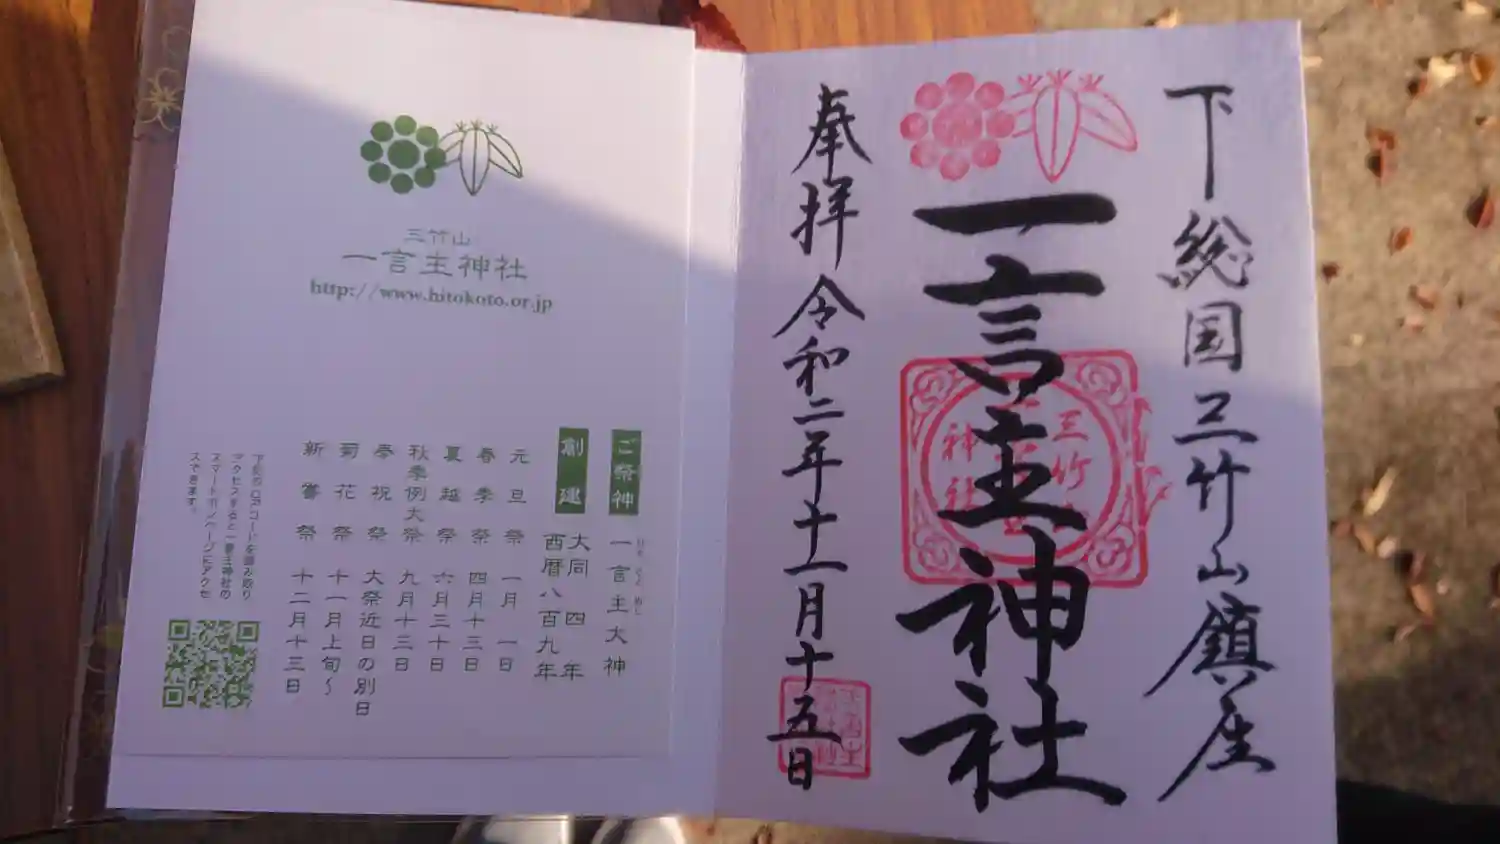 下総国三竹山鎮座
一言主神社
奉拝 令和二年十一月十五日
三竹山
一言主神社
http://www.hitokoto.or.jp
ご祭神 一言主大神
創建 大同四年
西暦八百九年
元旦祭 一月一日
春季祭 四月十三日
夏越祭 六月三十日
秋季例大祭 九月十三日
夢祝祭 大祭近日の別日
菊花祭 十一月上旬~
新嘗祭 十二月十三日
下記のQRコードを読み取り
アクセスすると一言主神社の
スマートホンページにアクセ
スできます。